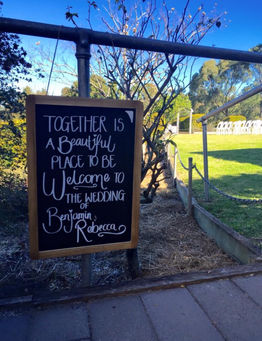 TOGETHER IS
A Beautiful
PLACE TO BE
Welcome to
THE WEDDING
OF
Benjamin &
Rebecca